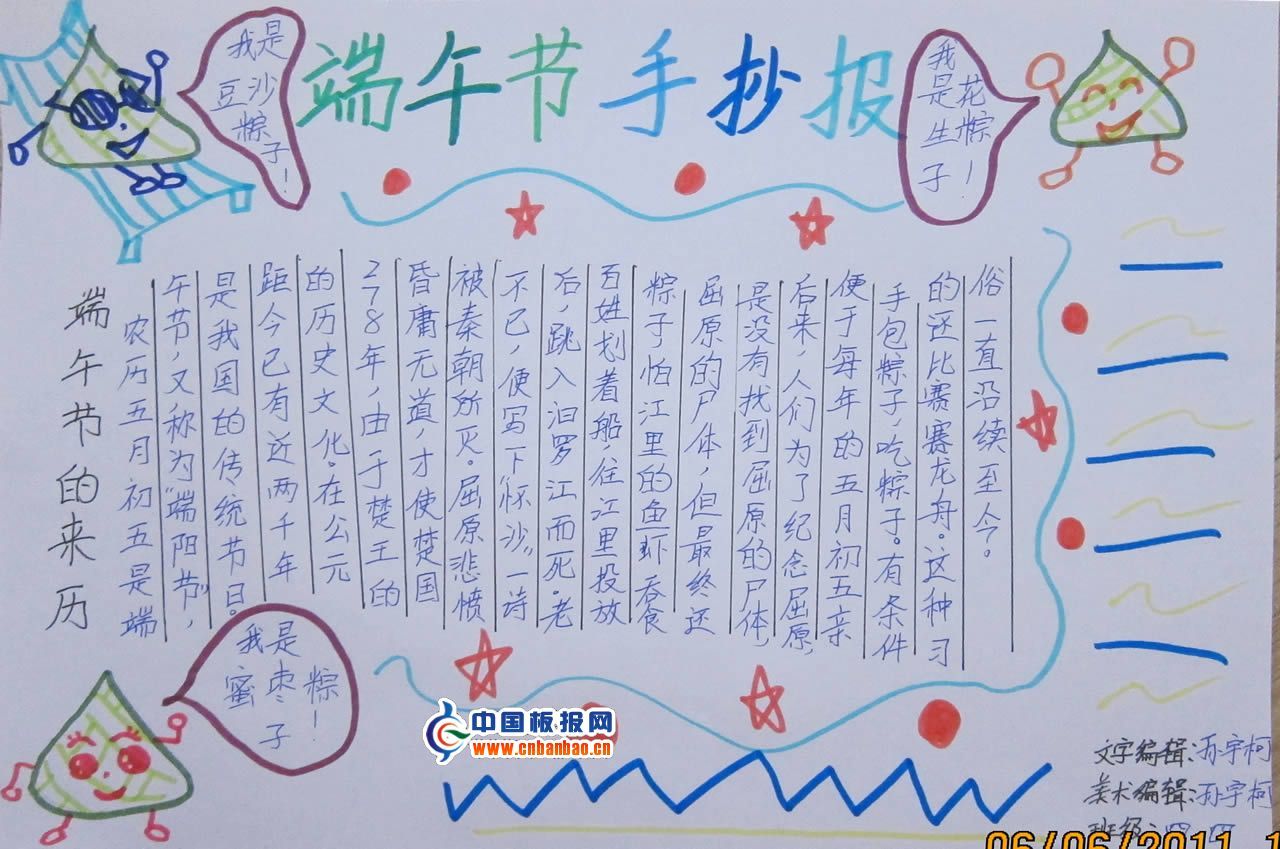 端午节手抄报
我是
豆沙
粽子!
我
是花
生粽
子!
端午节的来历
农历五月初五是端
午节,又称为"端阳节",
是我国的传统节日。
距今已有近两千年
的历史文化。在公元
278年,由于楚王的
昏庸无道,才使楚国
被秦朝所灭。屈原悲愤
不已,便写下"怀沙"一诗
后,跳入汨罗江而死。老
百姓划着船,往江里投放
粽子怕江里的鱼虾吞食
屈原的尸体,但最终还
是没有找到屈原的尸体,
后来,人们为了纪念屈原,
便于每年的五月初五亲
手包粽子,吃粽子。有条件
的还比赛赛龙舟。这种习
俗一直沿续至今。
我是
蜜枣粽
子!
中国板报网
www.cnbanbao.cn
文字编辑:孙宇柯
美术编辑:孙宇柯
班级:四.四
06/06/2011 1